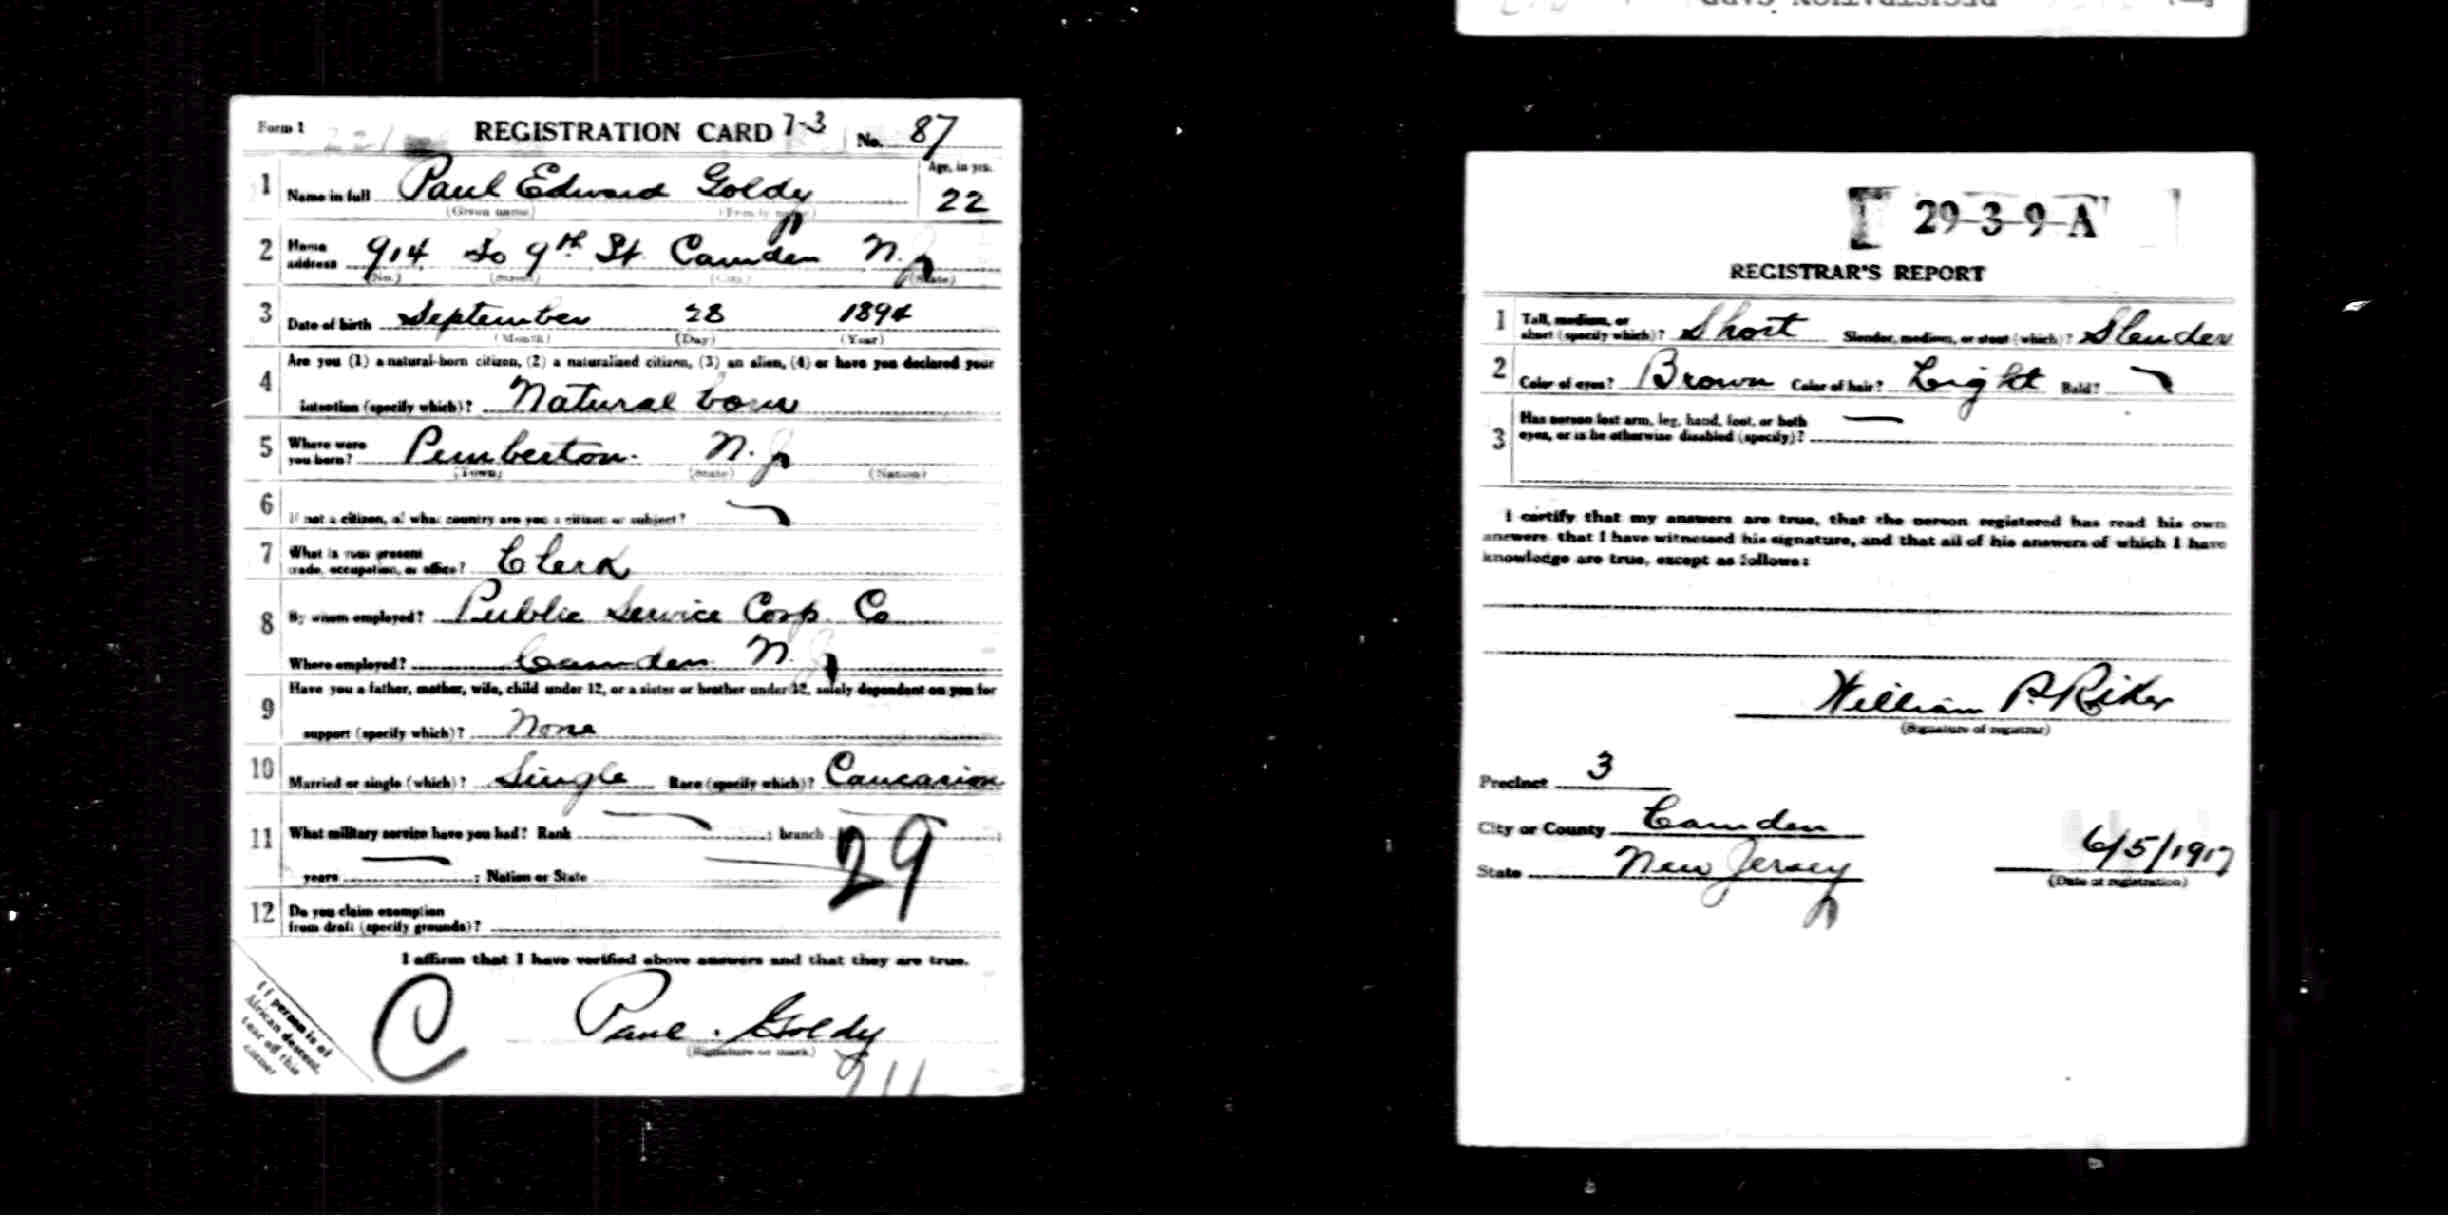 Form 1 REGISTRATION CARD 7-3 No. 87
1 Name in full Paul Edward Goldy Age, in yrs. 22
(Given name) (Family name)
2 Home address 914 So 9th St. Camden N.J.
(No.) (Street) (City) (State)
3 Date of birth September 28 1894
(Month) (Day) (Year)
4 Are you (1) a natural-born citizen, (2) a naturalized citizen, (3) an alien, (4) or have you declared your
intention (specify which)? Natural born
5 Where were you born? Pemberton. N.J.
(Town) (State) (Nation)
6 If not a citizen, of what country are you a citizen or subject? —
7 What is your present trade, occupation, or office? Clerk
8 By whom employed? Public Service Corp. Co
Where employed? Camden N.J.
9 Have you a father, mother, wife, child under 12, or a sister or brother under 12, solely dependent on you for
support (specify which)? None
10 Married or single (which)? Single Race (specify which)? Caucasion
11 What military service have you had? Rank — ; branch — ;
years — ; Nation or State —
29
12 Do you claim exemption from draft (specify grounds)?
I affirm that I have verified above answers and that they are true.
C
Paul . Goldy
(Signature or mark)
If person is of
African descent,
tear off this
corner
29-3-9-A
REGISTRAR'S REPORT
1 Tall, medium, or short (specify which)? Short Slender, medium, or stout (which)? Slender
2 Color of eyes? Brown Color of hair? Light Bald? —
3 Has person lost arm, leg, hand, foot, or both
eyes, or is he otherwise disabled (specify)? —
I certify that my answers are true, that the person registered has read his own
answers, that I have witnessed his signature, and that all of his answers of which I have
knowledge are true, except as follows:
William P. Riker
(Signature of registrar)
Precinct 3
City or County Camden
State New Jersey
6/5/1917
(Date of registration)